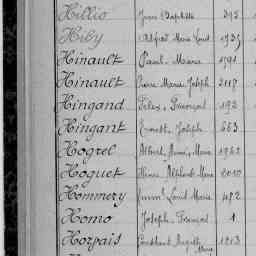 Hillio Jean Baptiste 395
Hiby Alfred Marie Louis 1935
Hinault Paul Marie 1791
Hinault Pierre Marie Joseph 2118
Hingand Félix François 192
Hingant Ernest Joseph 663
Hogrel Albert Marie 1962
Hoguet Alphonse Marie 2010
Hommery Louis Marie 482
Homo Joseph François 1
Horpais Constant Auguste Marie 1213